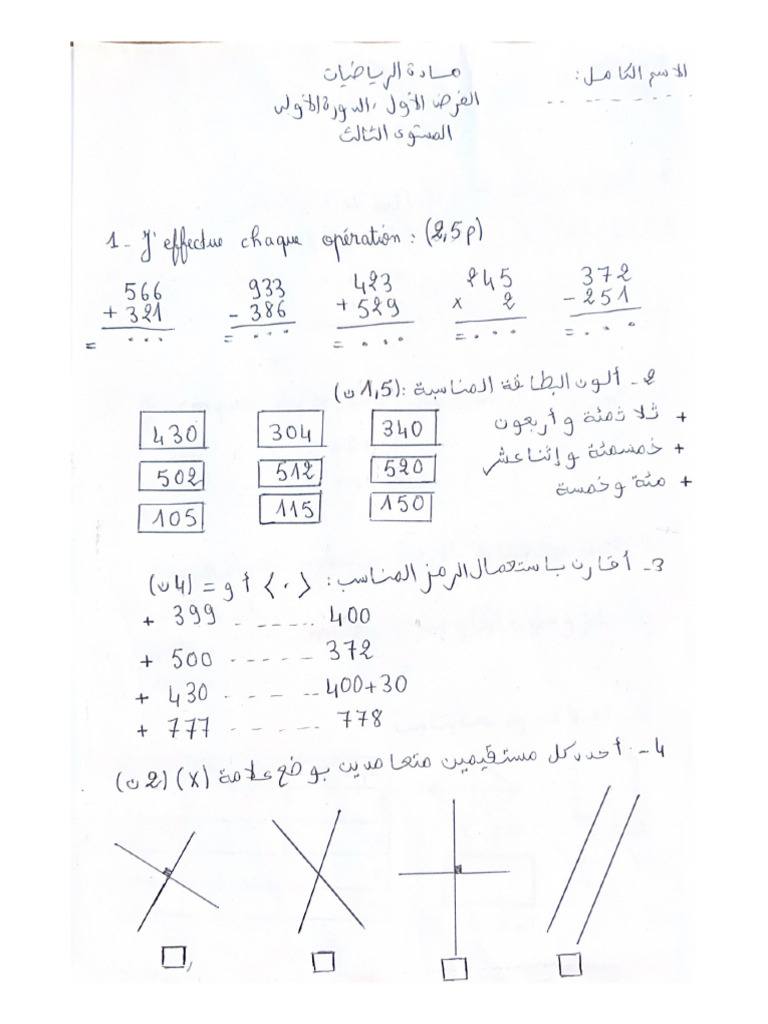 الاسم الكامل:
مادة الرياضيات
الفرض الأول، الدورة الأولى
المستوى الثالث
1- J'effectue chaque opération : (2,5p)
566 933 423 245 372
+ 321 - 386 + 529 x 2 - 251
= ... = ... = ... = ... = ...
2- ألون البطاقة المناسبة : (1,5ن)
+ ثلاثمئة وأربعون
+ خمسمئة وإثنا عشر
+ مئة وخمسة
430 304 340
502 512 520
105 115 150
3- أقارن باستعمال الرمز المناسب: < ، > أو = (4ن)
+ 399 ........ 400
+ 500 ........ 372
+ 430 ........ 400+30
+ 777 ........ 778
4- أحدد كل مستقيمين متعامدين بوضع علامة (x) (2ن)